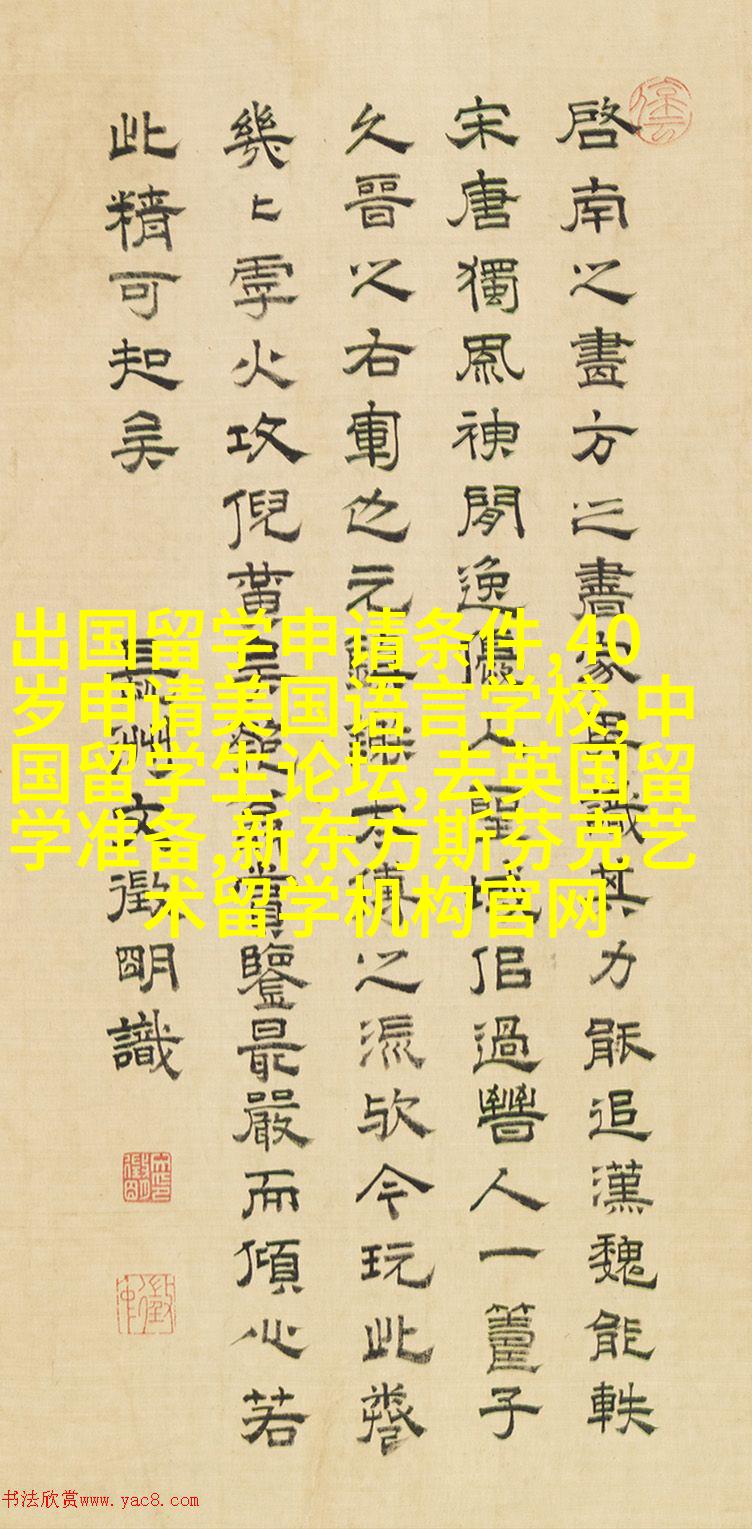 啓南之畫方之書家識其力追漢魏能軼
宋唐獨風神閒逸優人聖域侶過晉人一籌子
久晉之右軍也元之派歟今玩此卷
幾上雩火攻倪黃賞鑒最嚴而傾心若
此精可知矣
長洲文徵明識
出国留学申请条件,40
岁申请美国语言学校,中
国留学生论坛,去英国留
学准备,新东方斯芬克艺
术留学机构官网
书法欣赏www.yac8.com